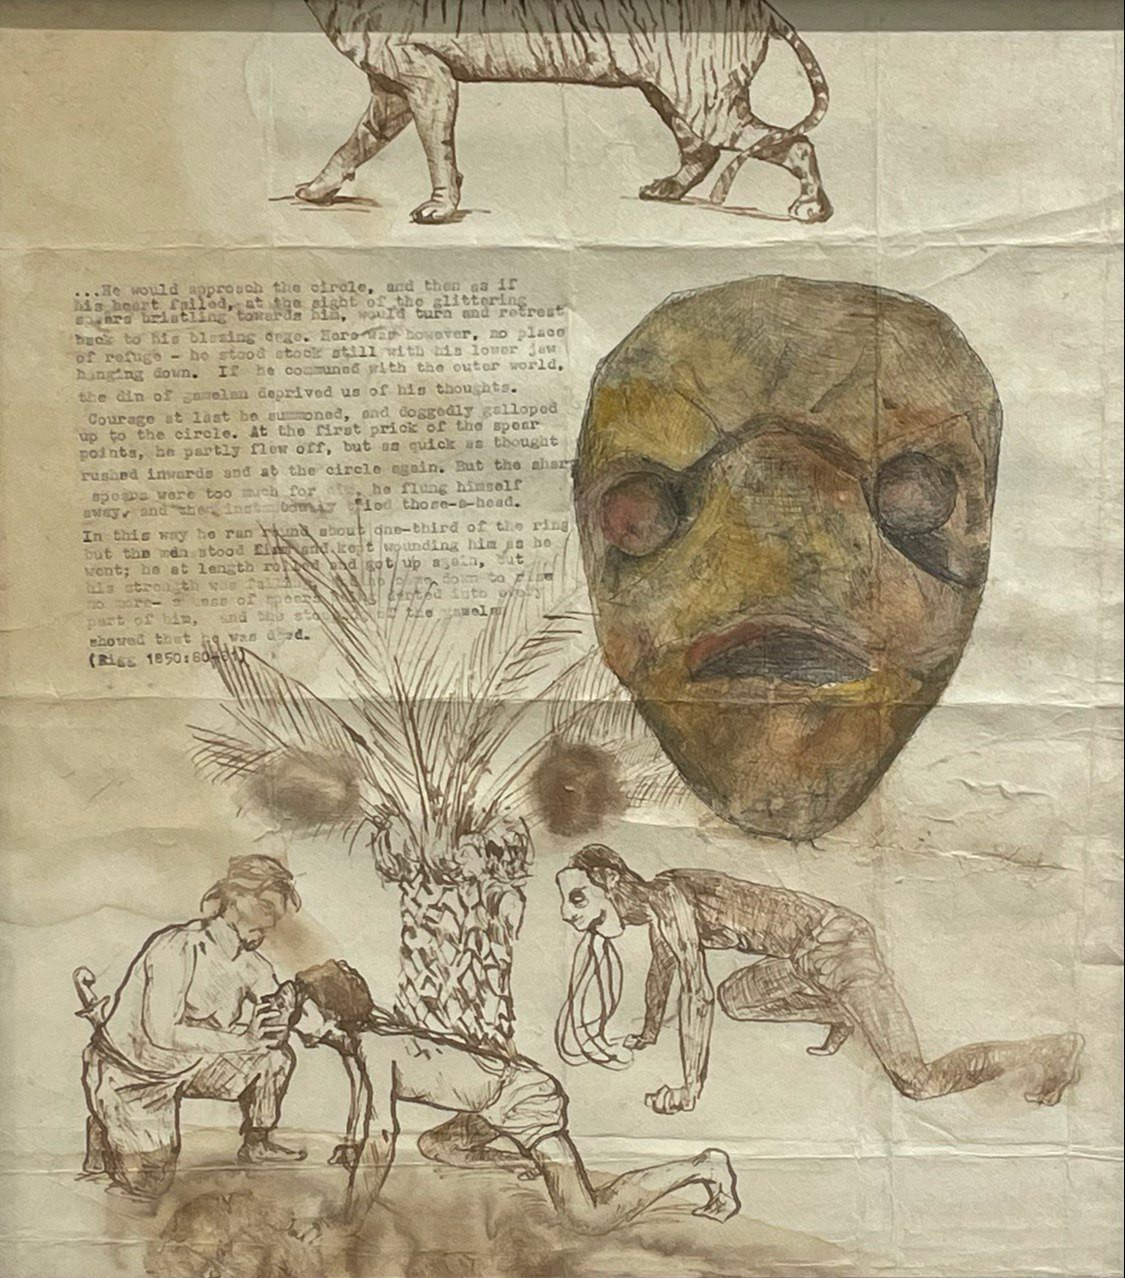 ...He would approach the circle, and then as if
his heart failed, at the sight of the glittering
spears bristling towards him, would turn and retreat
back to his blazing cage. Here was however, no place
of refuge - he stood stock still with his lower jaw
hanging down. If he communed with the outer world,
the din of gamelan deprived us of his thoughts.
Courage at last he summoned, and doggedly galloped
up to the circle. At the first prick of the spear
points, he partly flew off, but as quick as thought
rushed inwards and at the circle again. But the sharp
spears were too much for him, he flung himself
away, and then tried those-a-head.
In this way he ran round about one-third of the ring
but the men stood firm and kept wounding him as he
went; he at length rolled and got up again, but
his strength was down to rise
no more- a mass of spears being darted into every
part of him, and the of the gamelan
showed that he was dead.
(Rigg 1850:80-81)